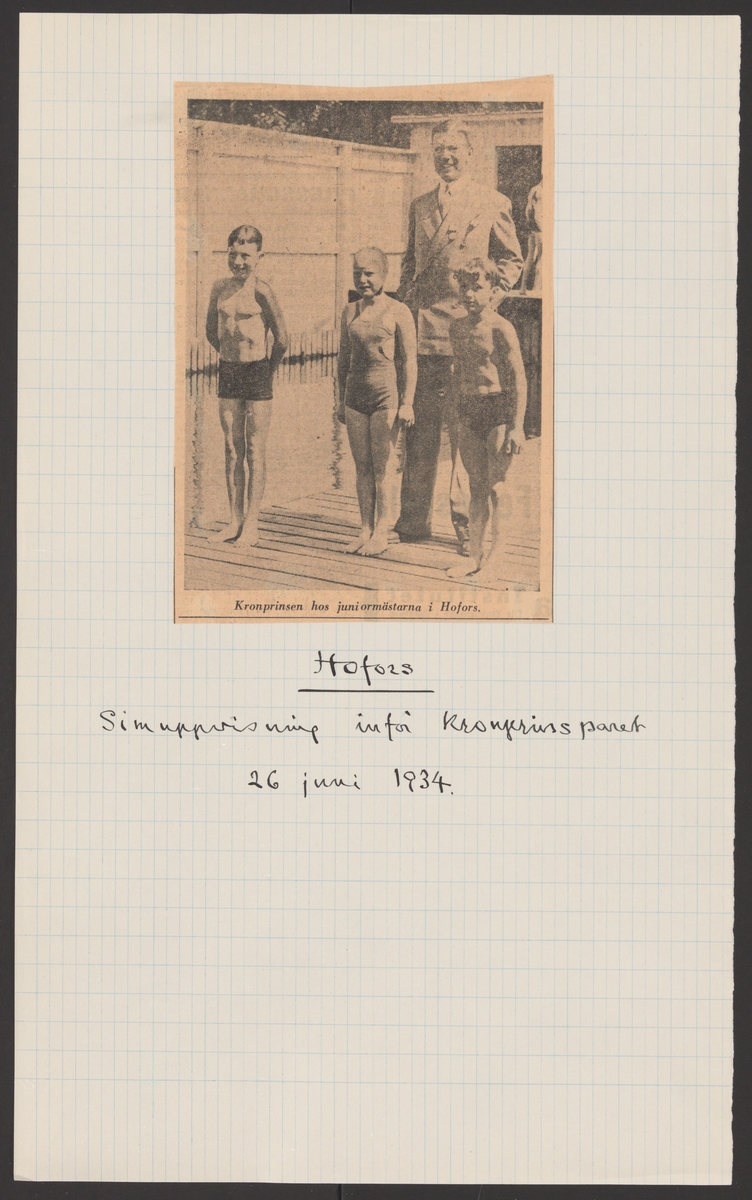 Kronprinsen hos juniormästarna i Hofors.
Hofors
Simuppvisning inför Kronprinsparet
26 juni 1934.